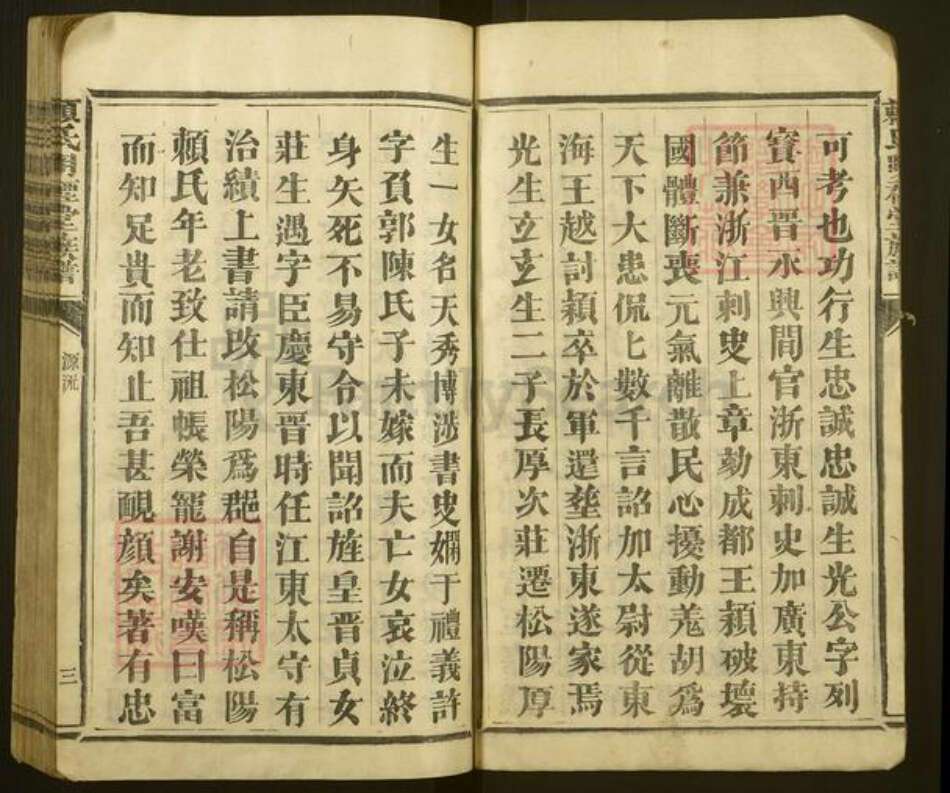 可考也功行生忠誠忠誠生光公字列
賓西晋永興間官浙東刺史加廣東持
節兼浙江刺叟上章劾成都王穎破壞
國體斷喪元氣離散民心擾動羗胡爲
天下大患侃匕數千言詔加太尉從東
海王越討穎卒於軍還塟浙東遂家焉
光生立玄生二子長厚次莊遷松陽厚
生一女名天秀博涉書叟嫻于禮義許
字頁郭陳氏子未嫁而夫亡女哀泣終
身矢死不易守令以聞詔旌皇晋貞女
莊生遇字臣慶東晋時任江東太守有
治績上書請攺松陽爲郡自是稱松陽
賴氏年老致仕祖帳榮寵謝安嘆曰富
而知足貴而知止吾甚靦顔矣著有忠
源流
三